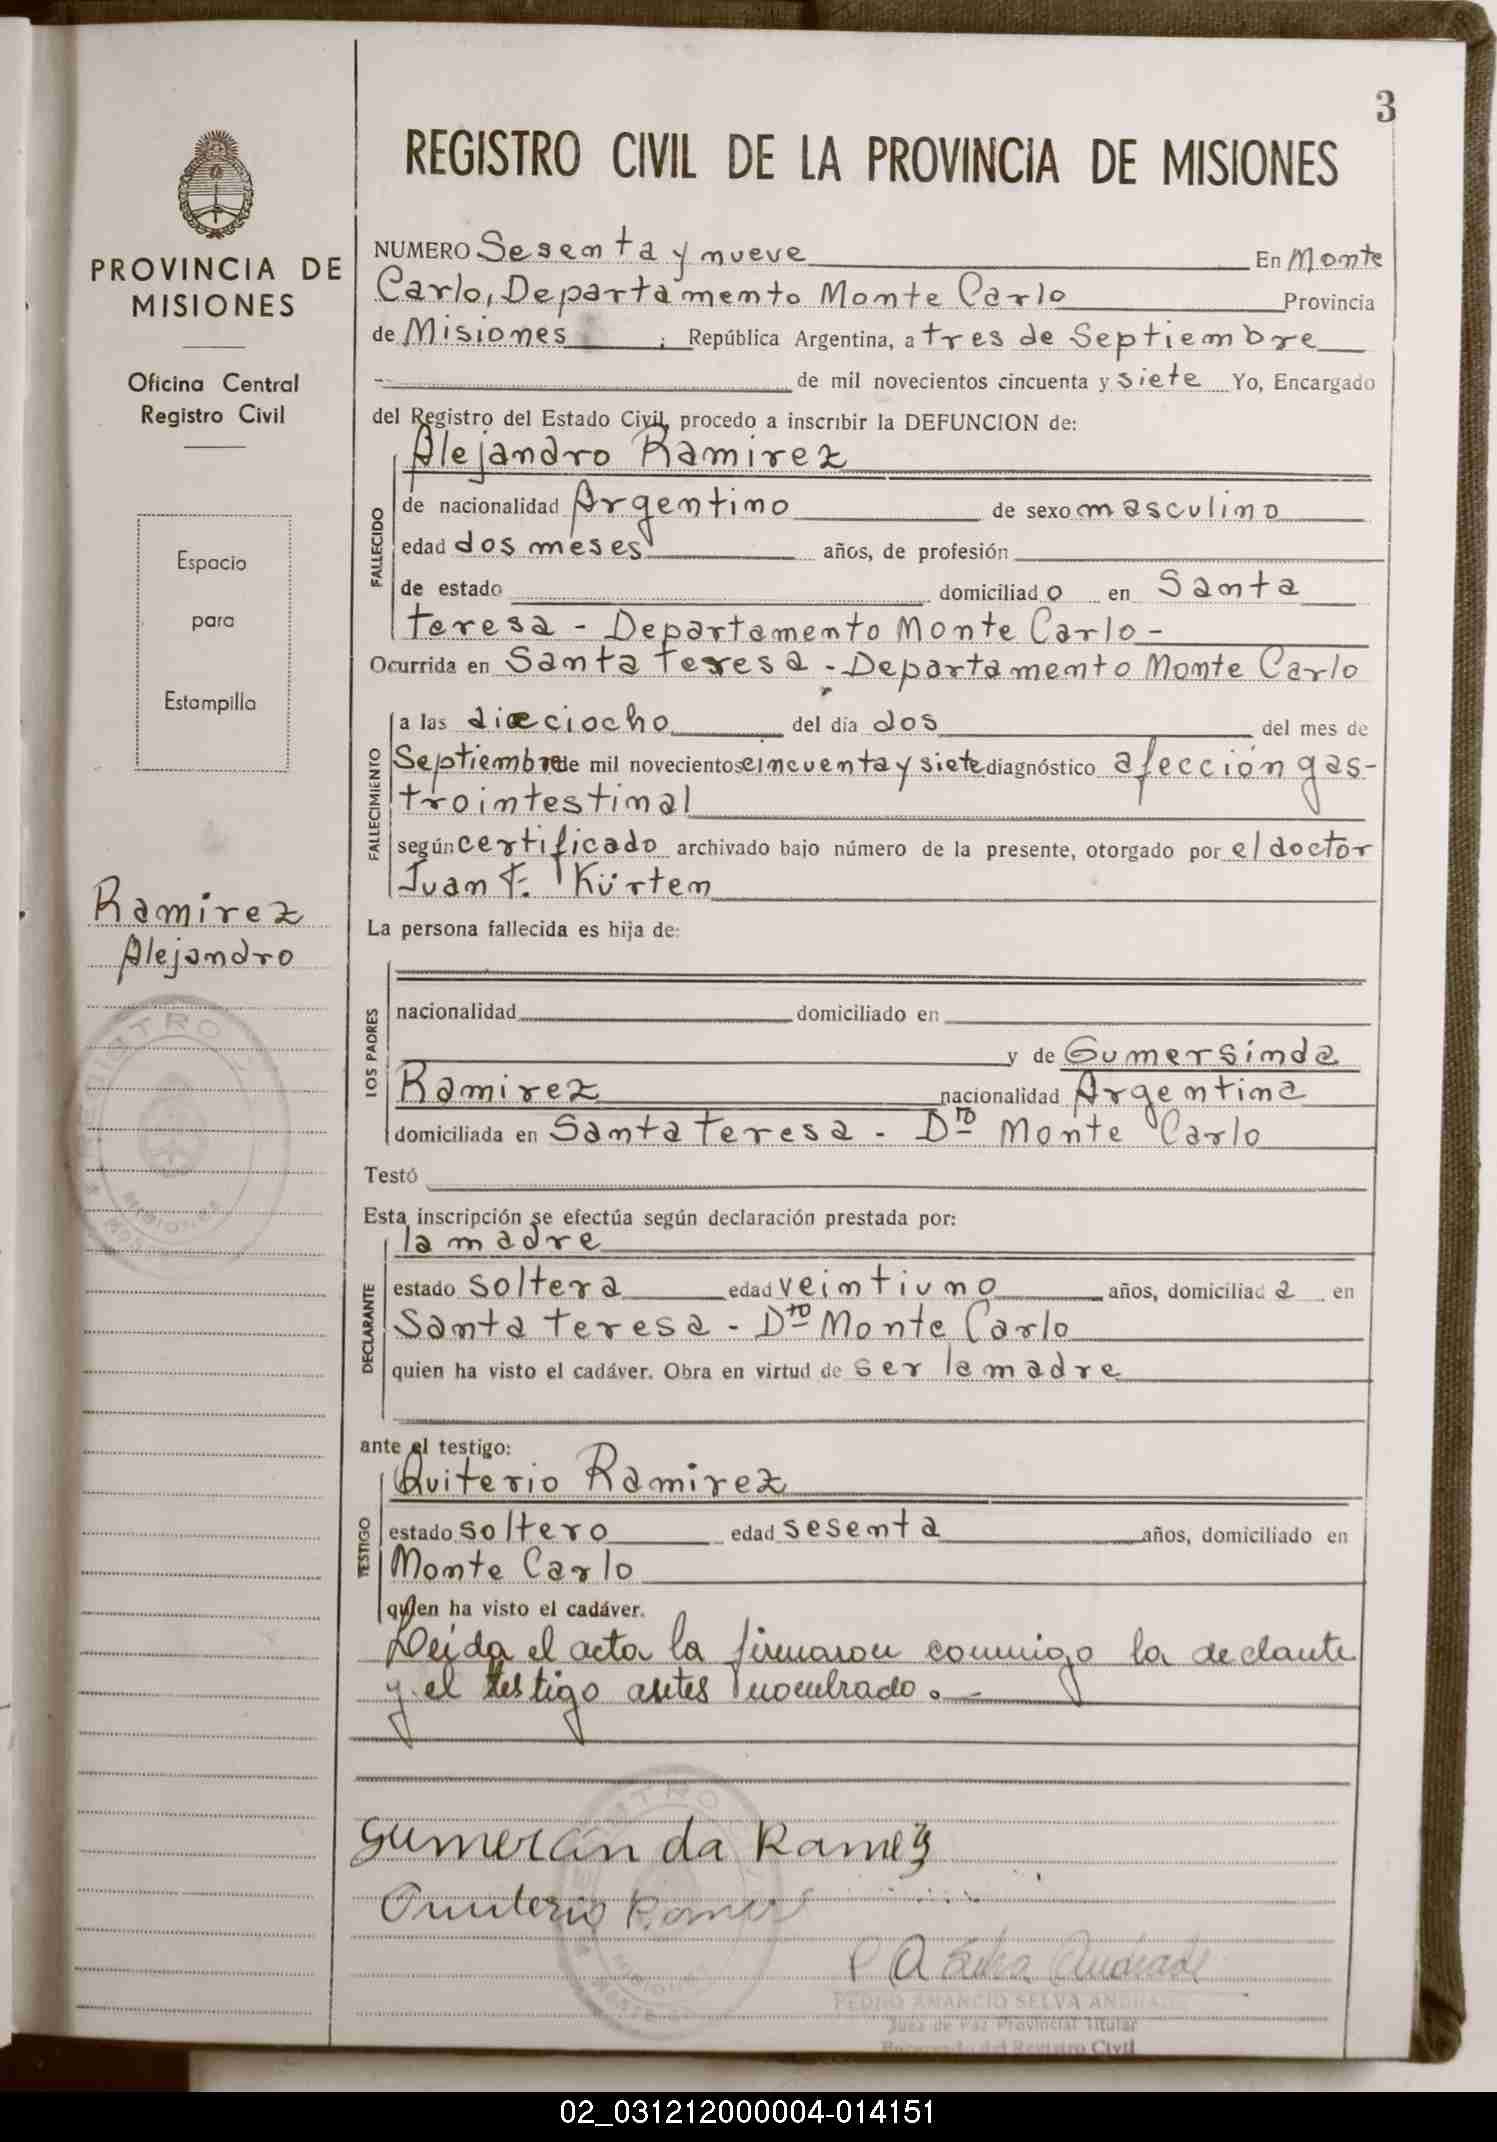 3
REGISTRO CIVIL DE LA PROVINCIA DE MISIONES
PROVINCIA DE
MISIONES
Oficina Central
Registro Civil
Espacio
para
Estampilla
Ramirez
Alejandro
NUMERO Sesenta y nueve En Monte
Carlo, Departamento Monte Carlo Provincia
de Misiones ; República Argentina, a tres de Septiembre
de mil novecientos cincuenta y siete Yo, Encargado
del Registro del Estado Civil, procedo a inscribir la DEFUNCION de:
Alejandro Ramirez
FALLECIDO
de nacionalidad Argentino de sexo masculino
edad dos meses años, de profesión
de estado domiciliado en Santa
Teresa - Departamento Monte Carlo -
Ocurrida en Santa Teresa - Departamento Monte Carlo
FALLECIMIENTO
a las dieciocho del día dos del mes de
Septiembre de mil novecientos cincuenta y siete diagnóstico afección gas-
trointestinal
según certificado archivado bajo número de la presente, otorgado por el doctor
Juan F. Kürten
La persona fallecida es hija de:
LOS PADRES
nacionalidad domiciliado en
y de Gumersinda
Ramirez nacionalidad Argentina
domiciliada en Santa Teresa - Dto Monte Carlo
Testó
Esta inscripción se efectúa según declaración prestada por:
la madre
DECLARANTE
estado soltera edad veintiuno años, domiciliada en
Santa Teresa - Dto Monte Carlo
quien ha visto el cadáver. Obra en virtud de ser la madre
ante el testigo:
Quiterio Ramirez
TESTIGO
estado soltero edad sesenta años, domiciliado en
Monte Carlo
quien ha visto el cadáver.
Leida el acta la firmaron conmigo la declante
y el testigo antes nombrado.-
Quiterio
PEDRO AMANCIO SELVA ANDRADE
Juez de Paz Provincial Titular
Encargado del Registro Civil
02_031212000004-014151